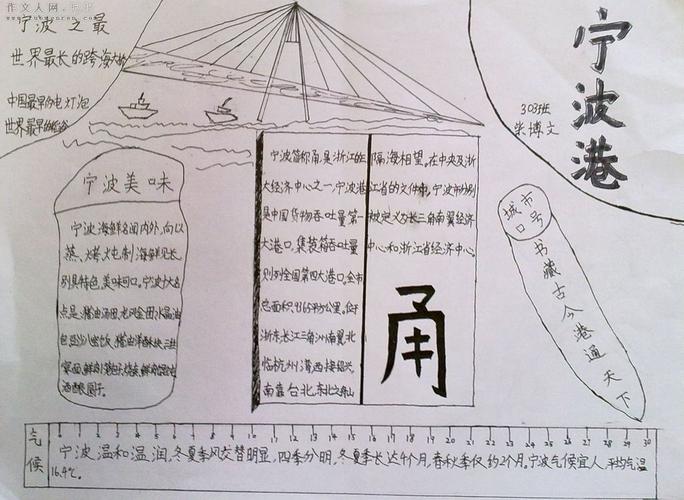 作文人网
宁波之最
世界最长的跨海大桥
中国最早的电灯泡
宁波港
303班
朱博文
宁波美味
宁波海鲜名闻内外,向以
蒸、烤、炖制海鲜见长,
别具特色,美味可口。宁波十大名
点是:猪油汤团、龙凤金团、水晶油
包、豆沙八宝饭、猪油洋酥块、三鲜
宴面、鲜肉
酒酿圆子。
宁波简称甬,是浙江的三
大经济中心之一,宁波港
是中国货物吞吐量第一
大港口,集装箱吞吐量
则列全国第四大港口。全市
总面积9365平方公里。位于
浙东,长江三角洲南翼,北
临杭州湾,西接绍兴,
南靠台北,东北与舟山
隔海相望。在中央及浙
江省的文件中,宁波市分别
被定义为长三角南翼经济
中心和浙江省经济中心。
甬
城市
口号
书藏古今港通天下
气候
0 1 2 3 4 5 6 7 8 9 10 11 12 13 14 15 16 17 18 19 20 21 22 23 24 25 26 27 28 29 30
宁波温和温润,冬夏季风交替明显,四季分明,冬夏季长达4个月,春秋季仅约2个月。宁波气候宜人,平均气温
16.4℃。